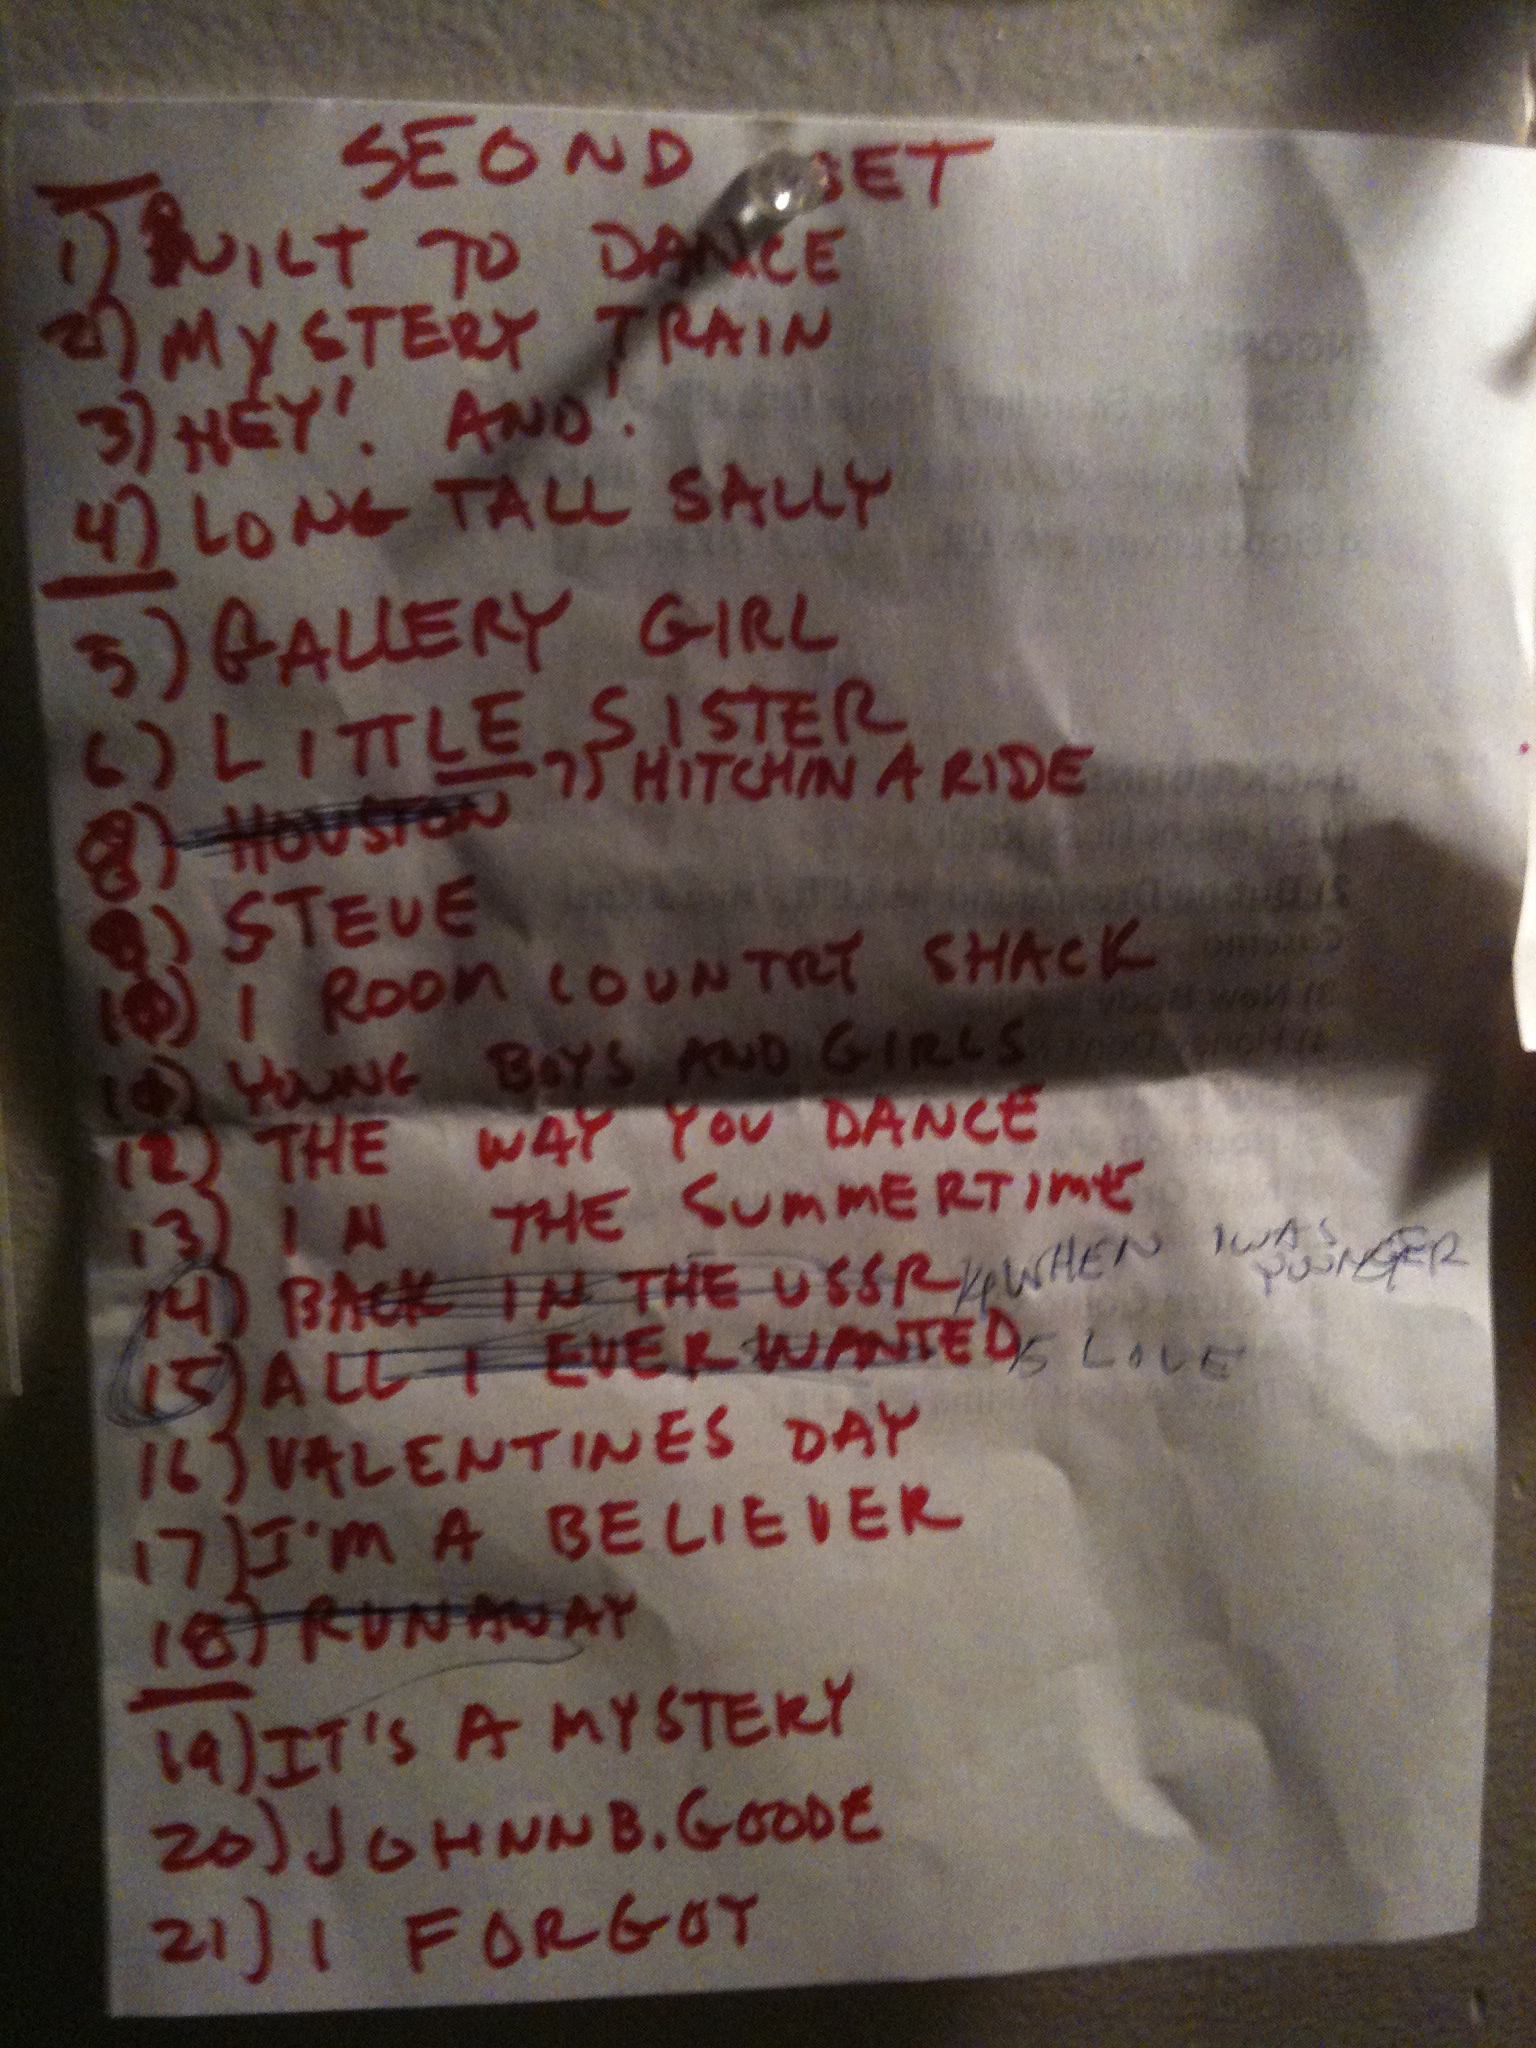 SEOND SET
1) BUILT TO DANCE
2) MYSTERY TRAIN
3) HEY! AND!
4) LONG TALL SALLY
5) GALLERY GIRL
6) LITTLE SISTER
7) HITCHIN A RIDE
8) HOUSTON
9) STEVE
10) 1 ROOM COUNTRY SHACK
11) YOUNG BOYS AND GIRLS
12) THE WAY YOU DANCE
13) IN THE SUMMERTIME
14) BACK IN THE USSR 14 WHEN I WAS YOUNGER
15) ALL I EVER WANTED 15 LOVE
16) VALENTINES DAY
17) I'M A BELIEVER
18) RUNAWAY
19) IT'S A MYSTERY
20) JOHNN B. GOODE
21) I FORGOT